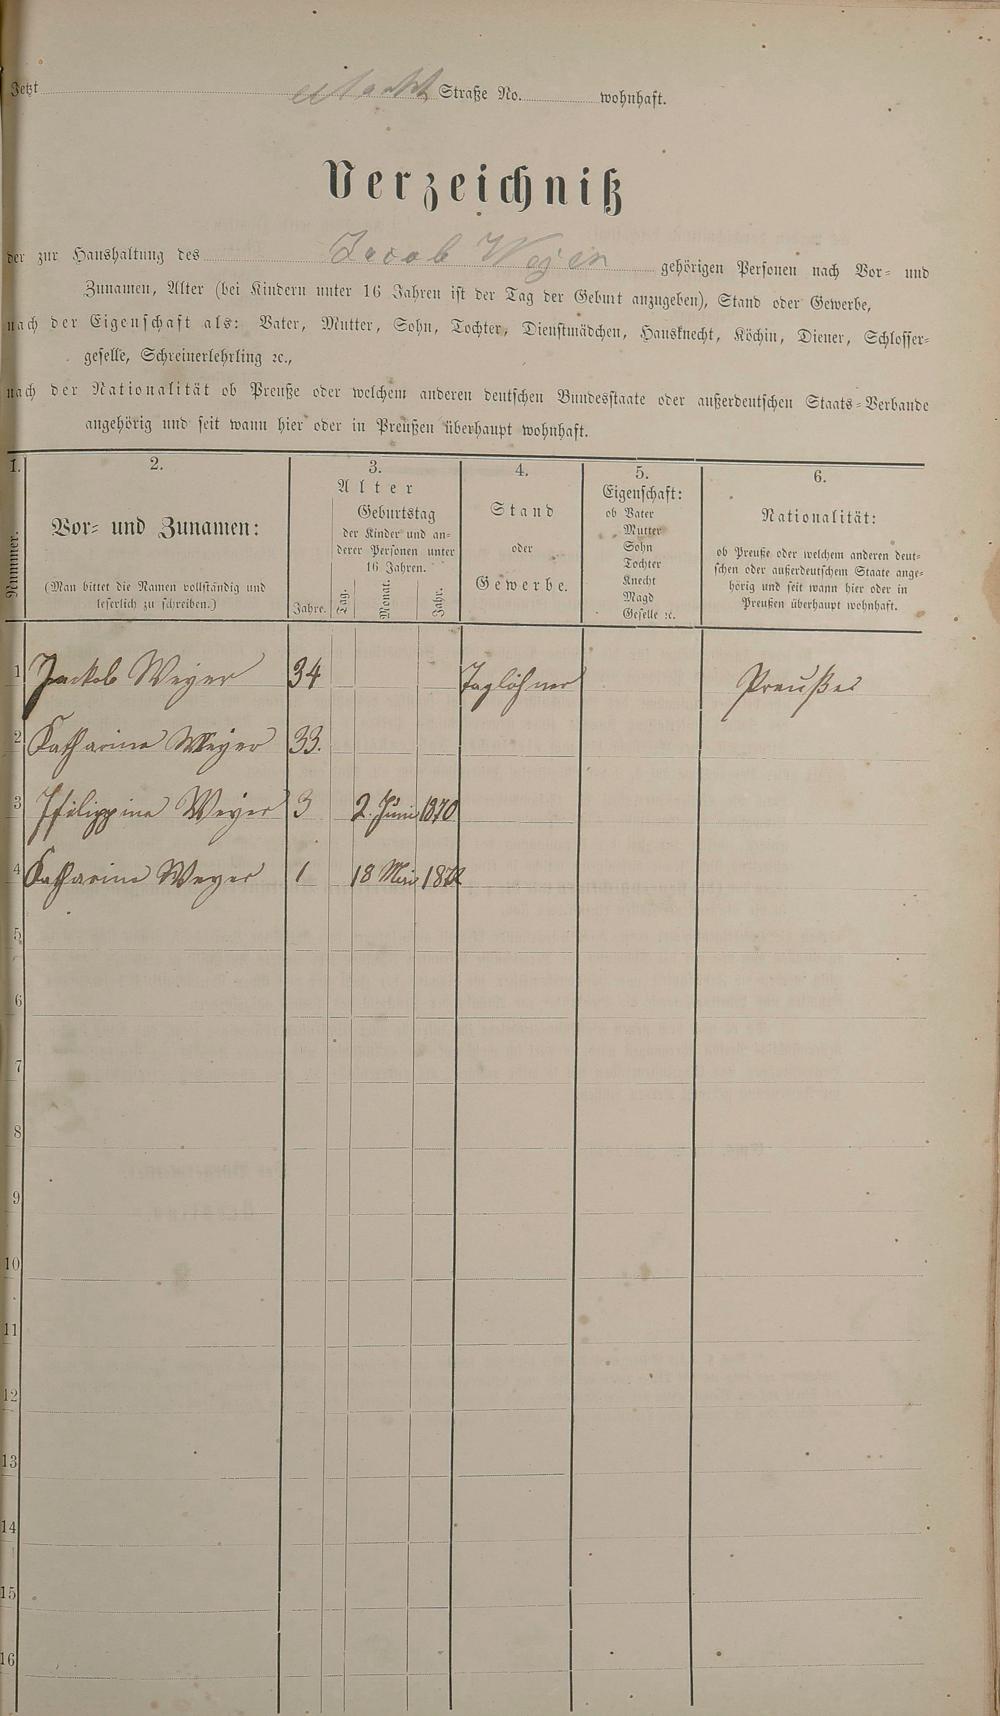 Jetzt Markt Straße No. wohnhaft.
Verzeichniß
der zur Haushaltung des Jacob Weyer gehörigen Personen nach Vor- und
Zunamen, Alter (bei Kindern unter 16 Jahren ist der Tag der Geburt anzugeben), Stand oder Gewerbe,
nach der Eigenschaft als: Vater, Mutter, Sohn, Tochter, Dienstmädchen, Hausknecht, Köchin, Diener, Schlosser-
geselle, Schreinerlehrling ꝛc.,
nach der Nationalität ob Preuße oder welchem anderen deutschen Bundesstaate oder außerdeutschen Staats-Verbande
angehörig und seit wann hier oder in Preußen überhaupt wohnhaft.
1.
Nummer.
2.
Vor- und Zunamen:
(Man bittet die Namen vollständig und
leserlich zu schreiben.)
3.
Alter
Jahre.
Geburtstag
der Kinder und an-
derer Personen unter
16 Jahren.
Tag.
Monat.
Jahr.
4.
Stand
oder
Gewerbe.
5.
Eigenschaft:
ob Vater
Mutter
Sohn
Tochter
Knecht
Magd
Geselle ꝛc.
6.
Nationalität:
ob Preuße oder welchem anderen deut-
schen oder außerdeutschem Staate ange-
hörig und seit wann hier oder in
Preußen überhaupt wohnhaft.
1 Jackob Weyer 34 Taglöhner Preußes
2 Katharina Weyer 33.
3 Philippina Weyer 3 2. Juni 1870
4 Katharina Weyer 1 18 1872
5
6
7
8
9
10
11
12
13
14
15
16